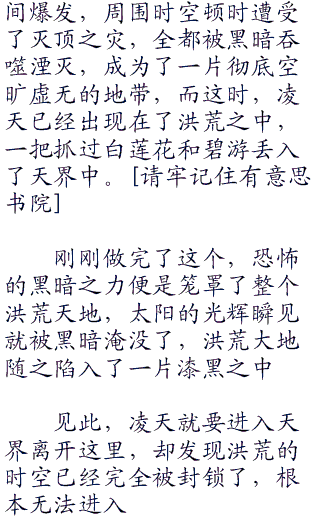 间爆发，周围时空顿时遭受
了灭顶之灾，全都被黑暗吞
噬湮灭，成为了一片彻底空
旷虚无的地带，而这时，凌
天已经出现在了洪荒之中，
一把抓过白莲花和碧游丢入
了天界中。[请牢记住有意思
书院]
刚刚做完了这个，恐怖
的黑暗之力便是笼罩了整个
洪荒天地，太阳的光辉瞬见
就被黑暗淹没了，洪荒大地
随之陷入了一片漆黑之中
见此，凌天就要进入天
界离开这里，却发现洪荒的
时空已经完全被封锁了，根
本无法进入